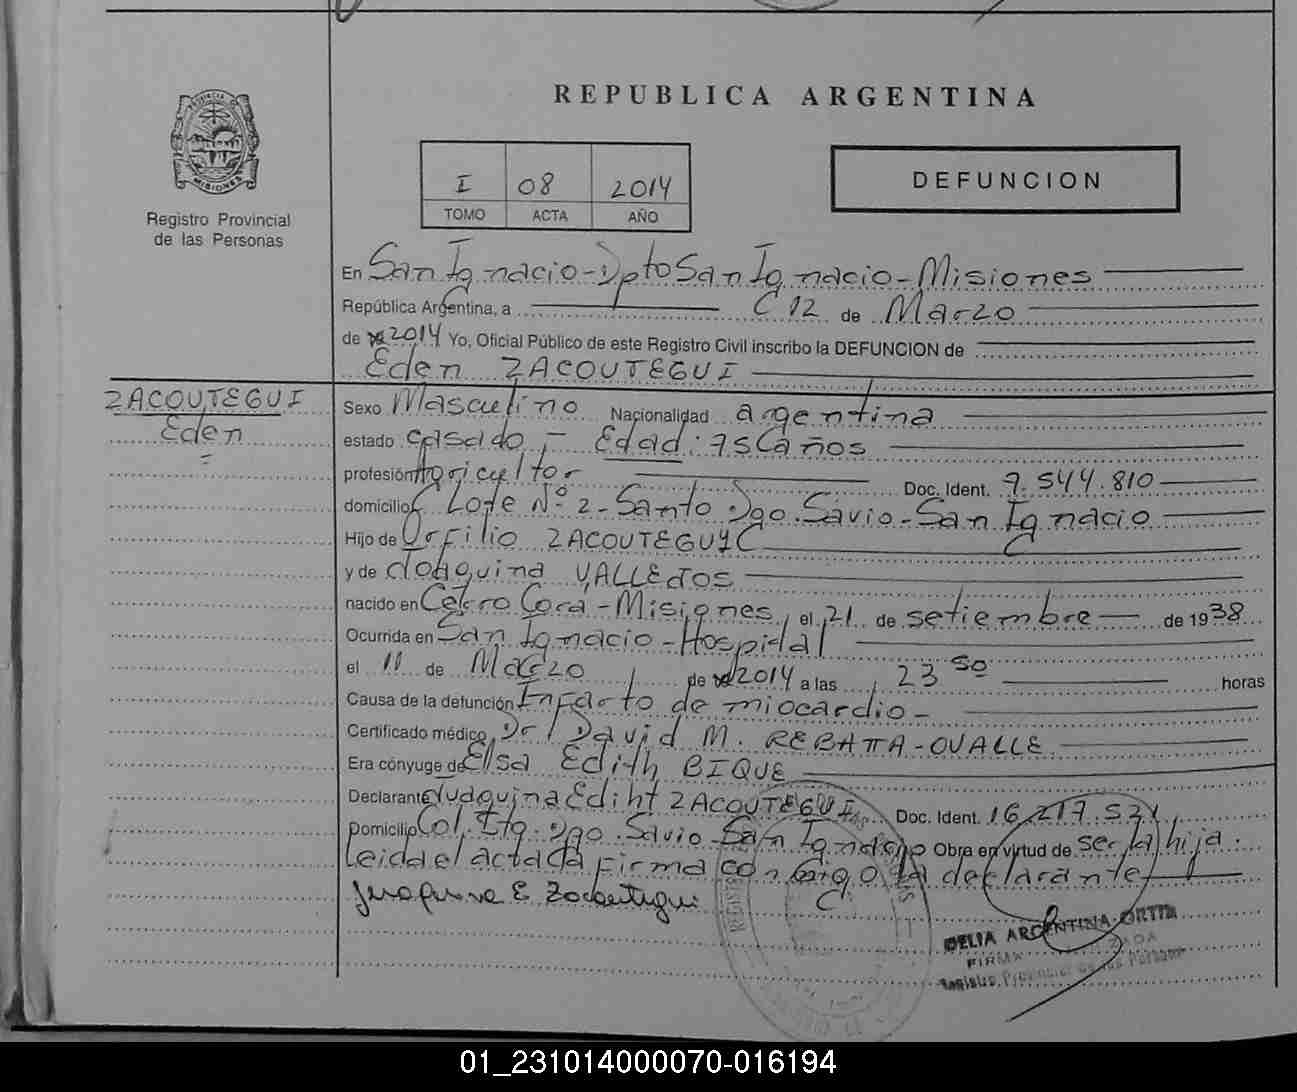 REPUBLICA ARGENTINA
PROVINCIA DE
MISIONES
Registro Provincial
de las Personas
I 08 2014
TOMO ACTA AÑO
DEFUNCION
En San Ignacio - Dpto San Ignacio - Misiones
República Argentina, a 12 de Marzo
de 2014 Yo, Oficial Público de este Registro Civil inscribo la DEFUNCION de
Eden ZACOUTEGUI
ZACOUTEGUI
Eden
Sexo Masculino Nacionalidad argentina
estado casado - Edad: 75 años
profesión Agricultor Doc. Ident. 7.544.810
domicilio Lote Nº 2 - Santo Dgo. Savio - San Ignacio
Hijo de Orfilio ZACOUTEGUI
y de Joaquina VALLEJOS
nacido en Cerro Cora - Misiones, el 21 de setiembre de 1938
Ocurrida en San Ignacio - Hospital
el 11 de Marzo de 2014 a las 23 50 horas
Causa de la defunción Infarto de miocardio -
Certificado médico Dr David M. REBATTA - OVALLE
Era cónyuge de Elsa Edith BIQUE
Declarante Juaquina Ediht ZACOUTEGUI Doc. Ident. 16.217.521
Domicilio Col. Dgo. Savio - San Ignacio Obra en virtud de ser la hija.
Leida el acta la firma conmigo la declarante
Juaquina E Zacoutegui
DELIA ARGENTINA ORTIZ
FIRMA AUTORIZADA
Registro Provincial de las Personas
01_231014000070-016194